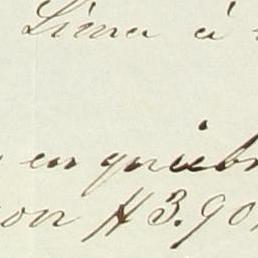 Lima á
en quieb
por # 3.90